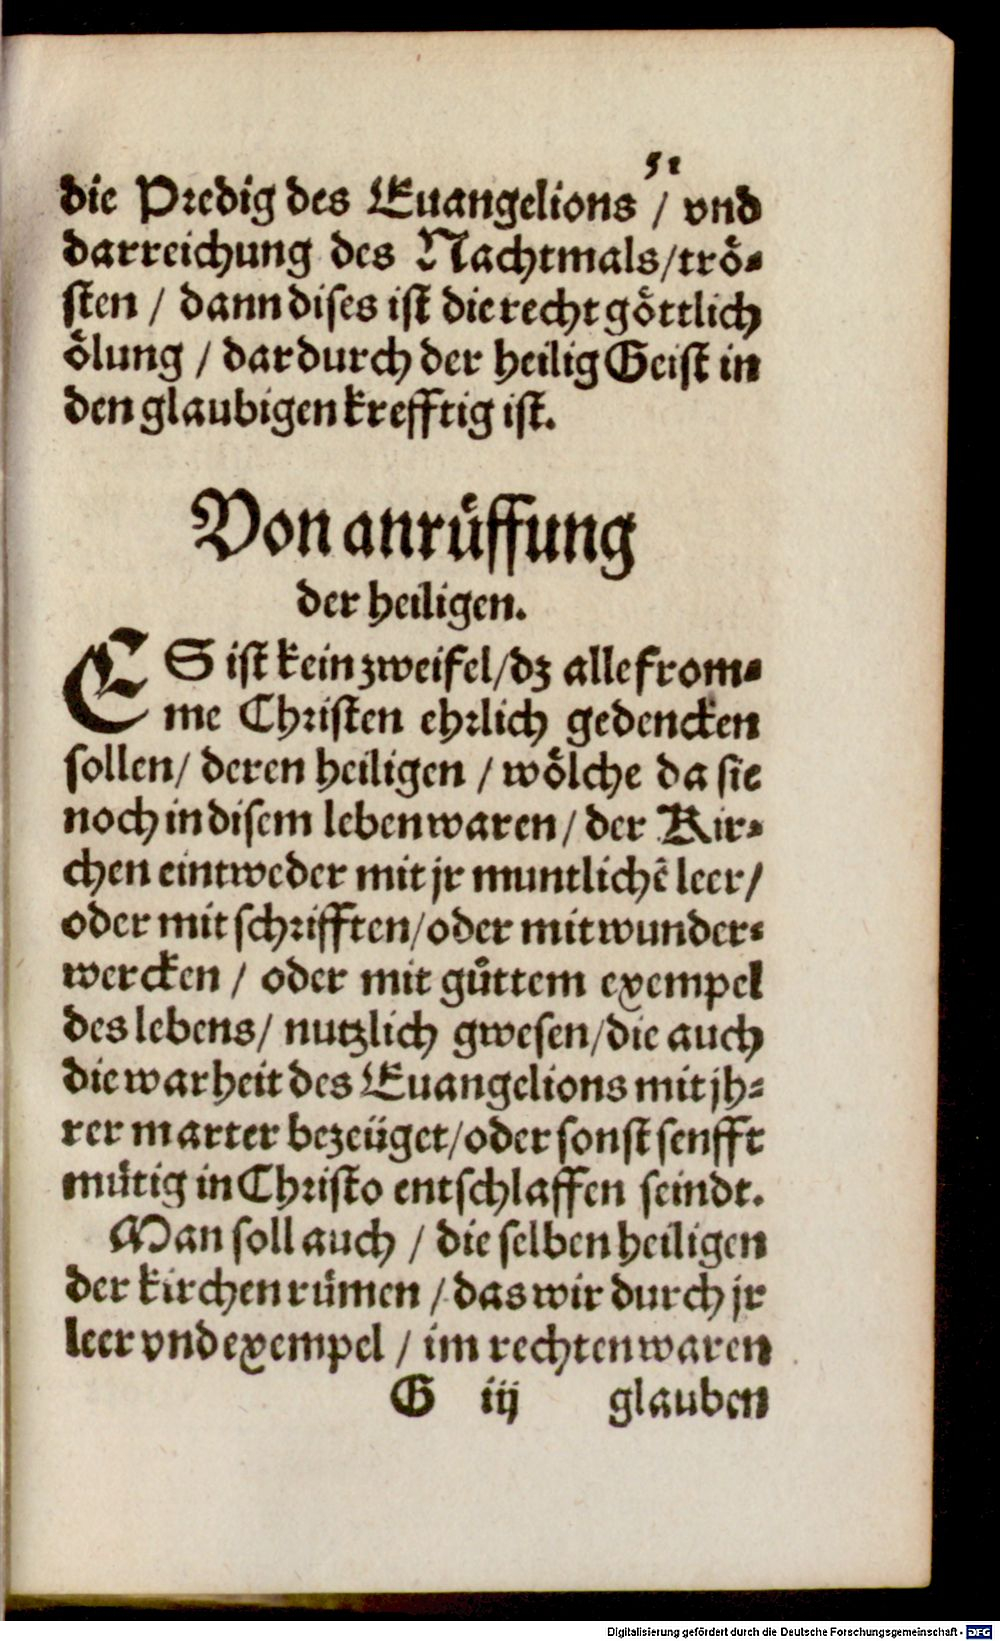 51
die Predig des Euangelions / vnd
darreichung des Nachtmals/trö⸗
sten / dann dises ist die recht göttlich
ölung / dardurch der heilig Geist in
den glaubigen krefftig ist.
Von anrüffung
der heiligen.
ES ist kein zweifel/dz alle from⸗
me Christen ehrlich gedencken
sollen/ deren heiligen / wölche da sie
noch in disem leben waren/ der Kir⸗
chen eintweder mit jr muntlichē leer/
oder mit schrifften/oder mit wunder⸗
wercken / oder mit gůttem exempel
des lebens/ nutzlich gwesen/die auch
die warheit des Euangelions mit jh⸗
rer marter bezeüget/oder sonst senfft
mütig in Christo entschlaffen seindt.
Man soll auch / die selben heiligen
der kirchen rümen / das wir durch jr
leer vnd exempel / im rechten waren
G iij glauben
Digitalisierung gefördert durch die Deutsche Forschungsgemeinschaft - DFG